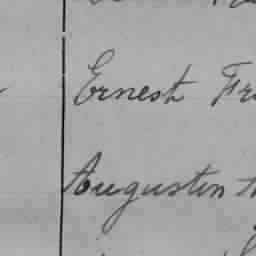 Ernest Fr
Augustin